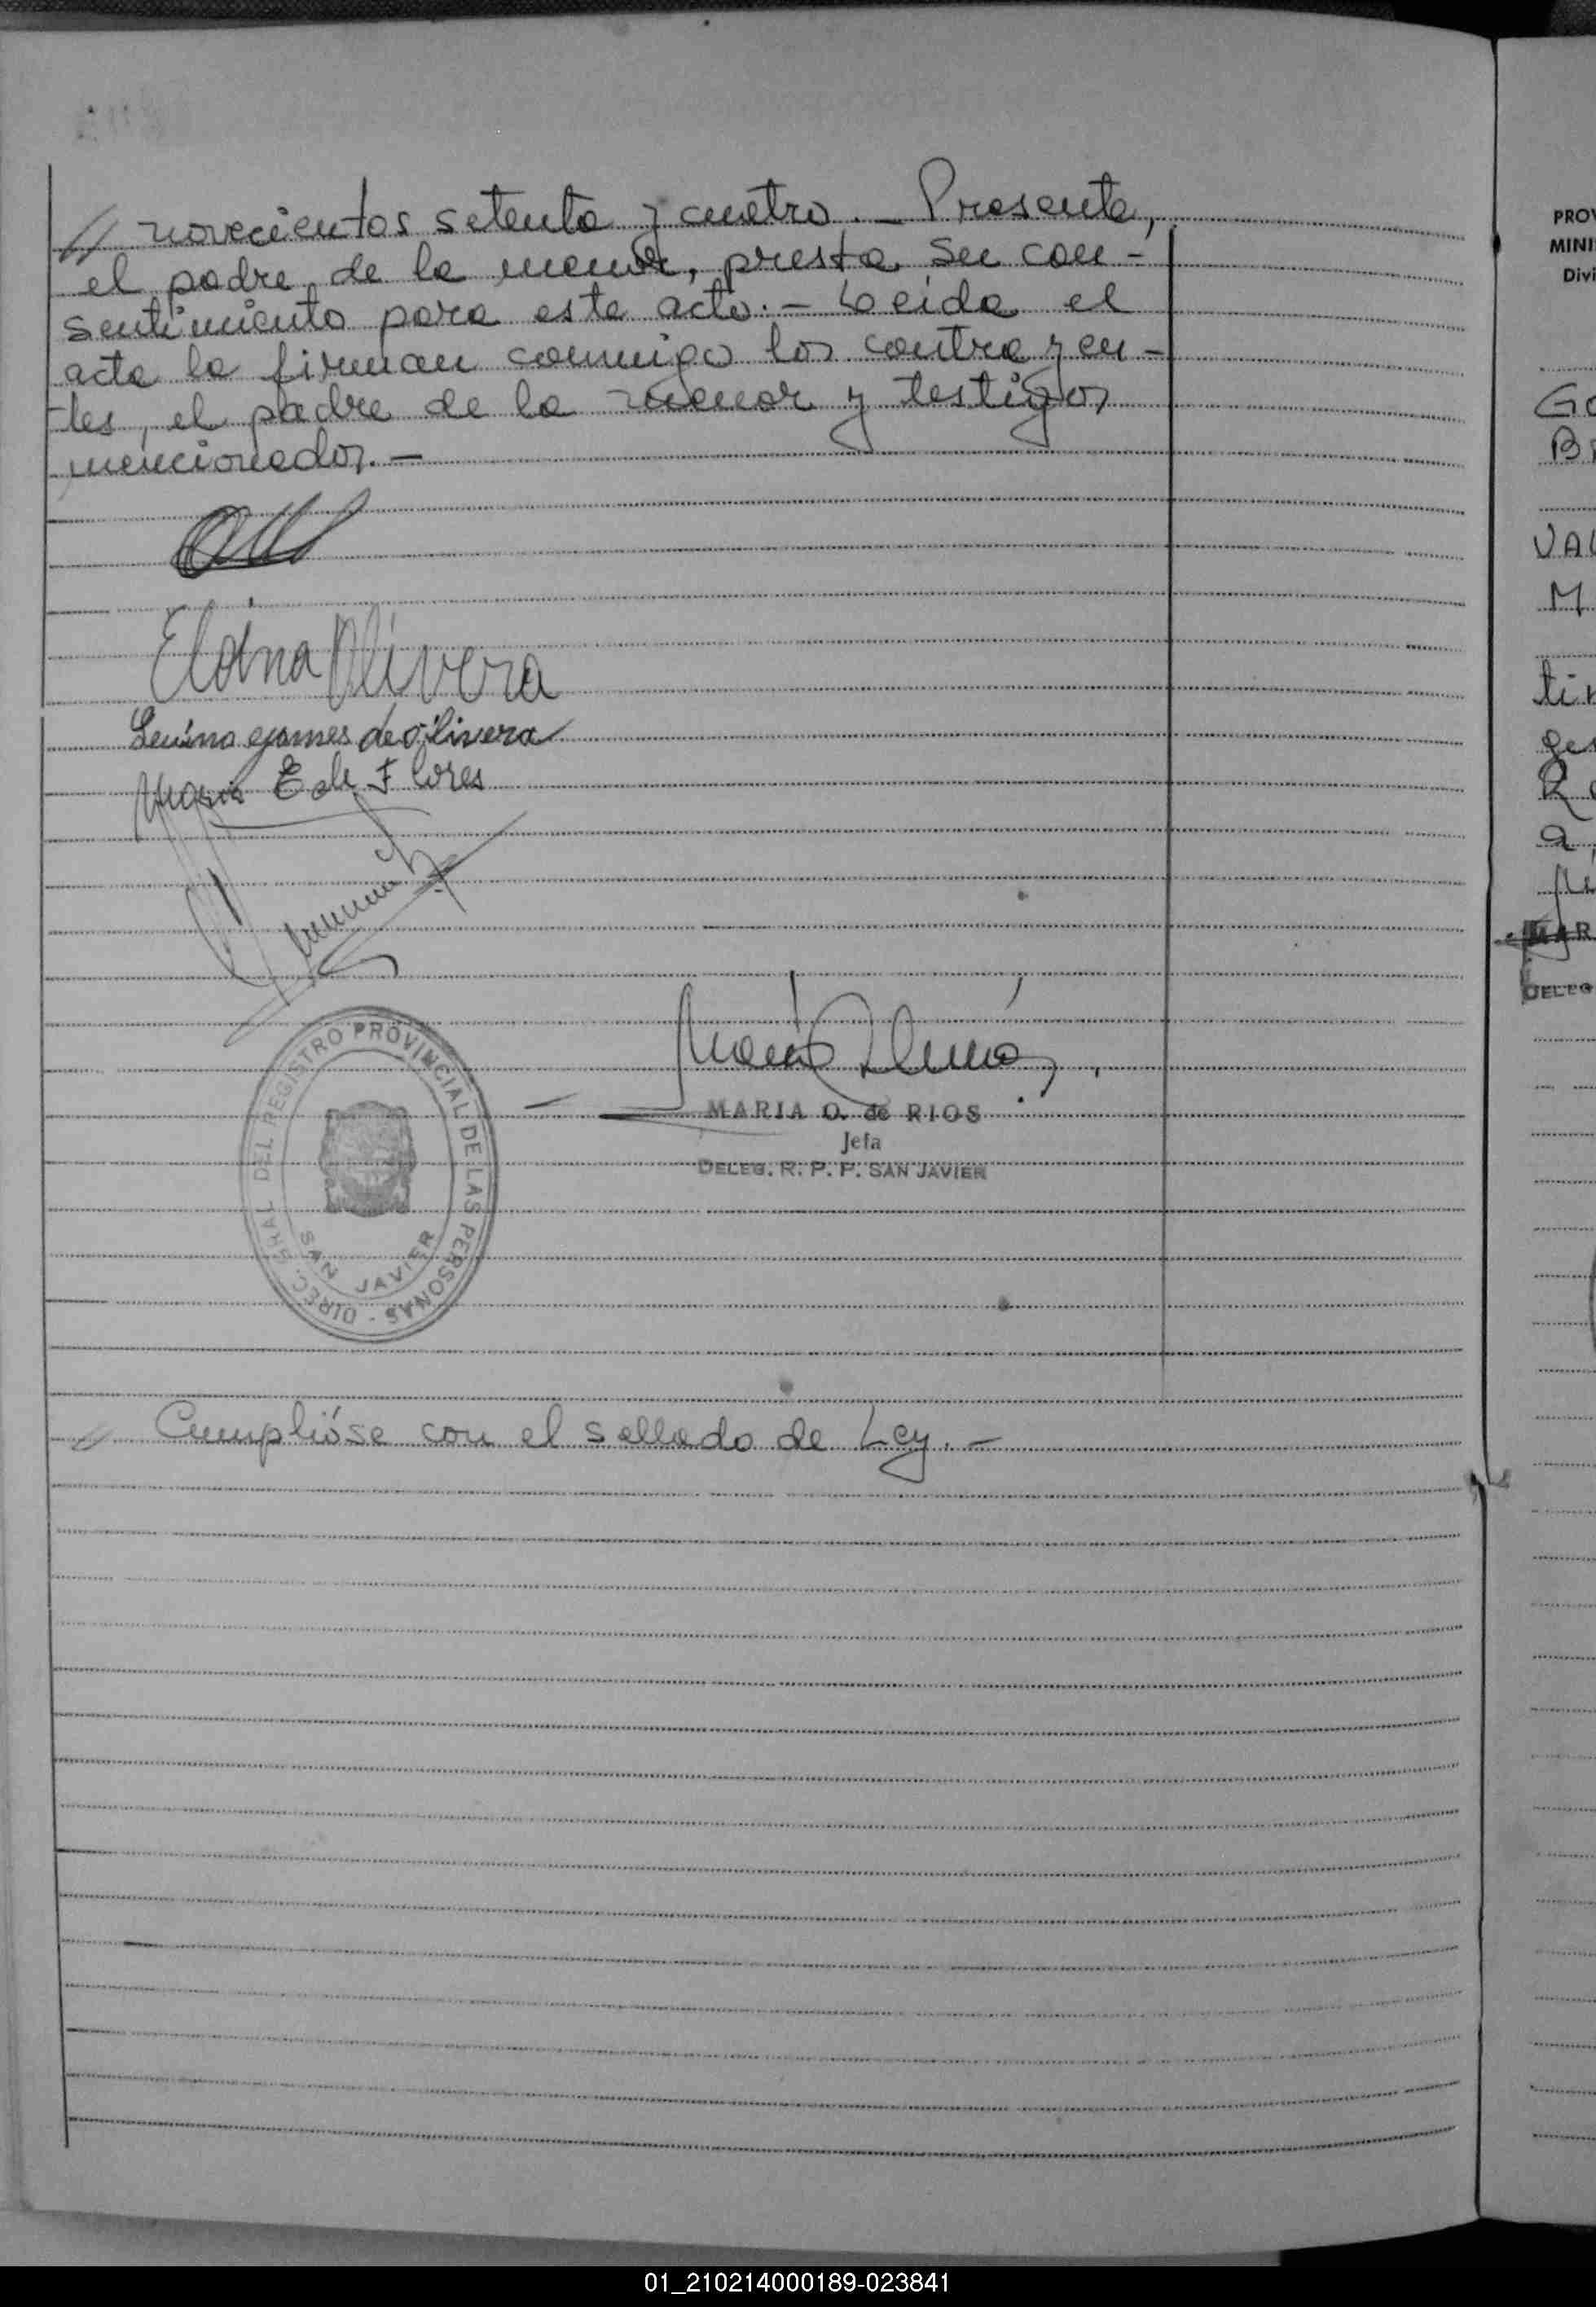 // novecientos setenta y cuatro. - Presente,
el padre de la menor, presta su con-
sentimiento para este acto. - Leida el
acta la firman conmigo los contrayen-
tes, el padre de la menor y testigos
mencionados. -
Eldina Olivera
gomes de olivera
Flores
MARIA O. de RIOS
Jefa
DELEG. R. P. P. SAN JAVIER
DIREC. GRAL DEL REGISTRO PROVINCIAL DE LAS PERSONAS -
SAN JAVIER
// Cumplióse con el sellado de Ley. -
PRO
MINI
Divi
Go
VAL
M
MAR
DELEG
01_210214000189-023841